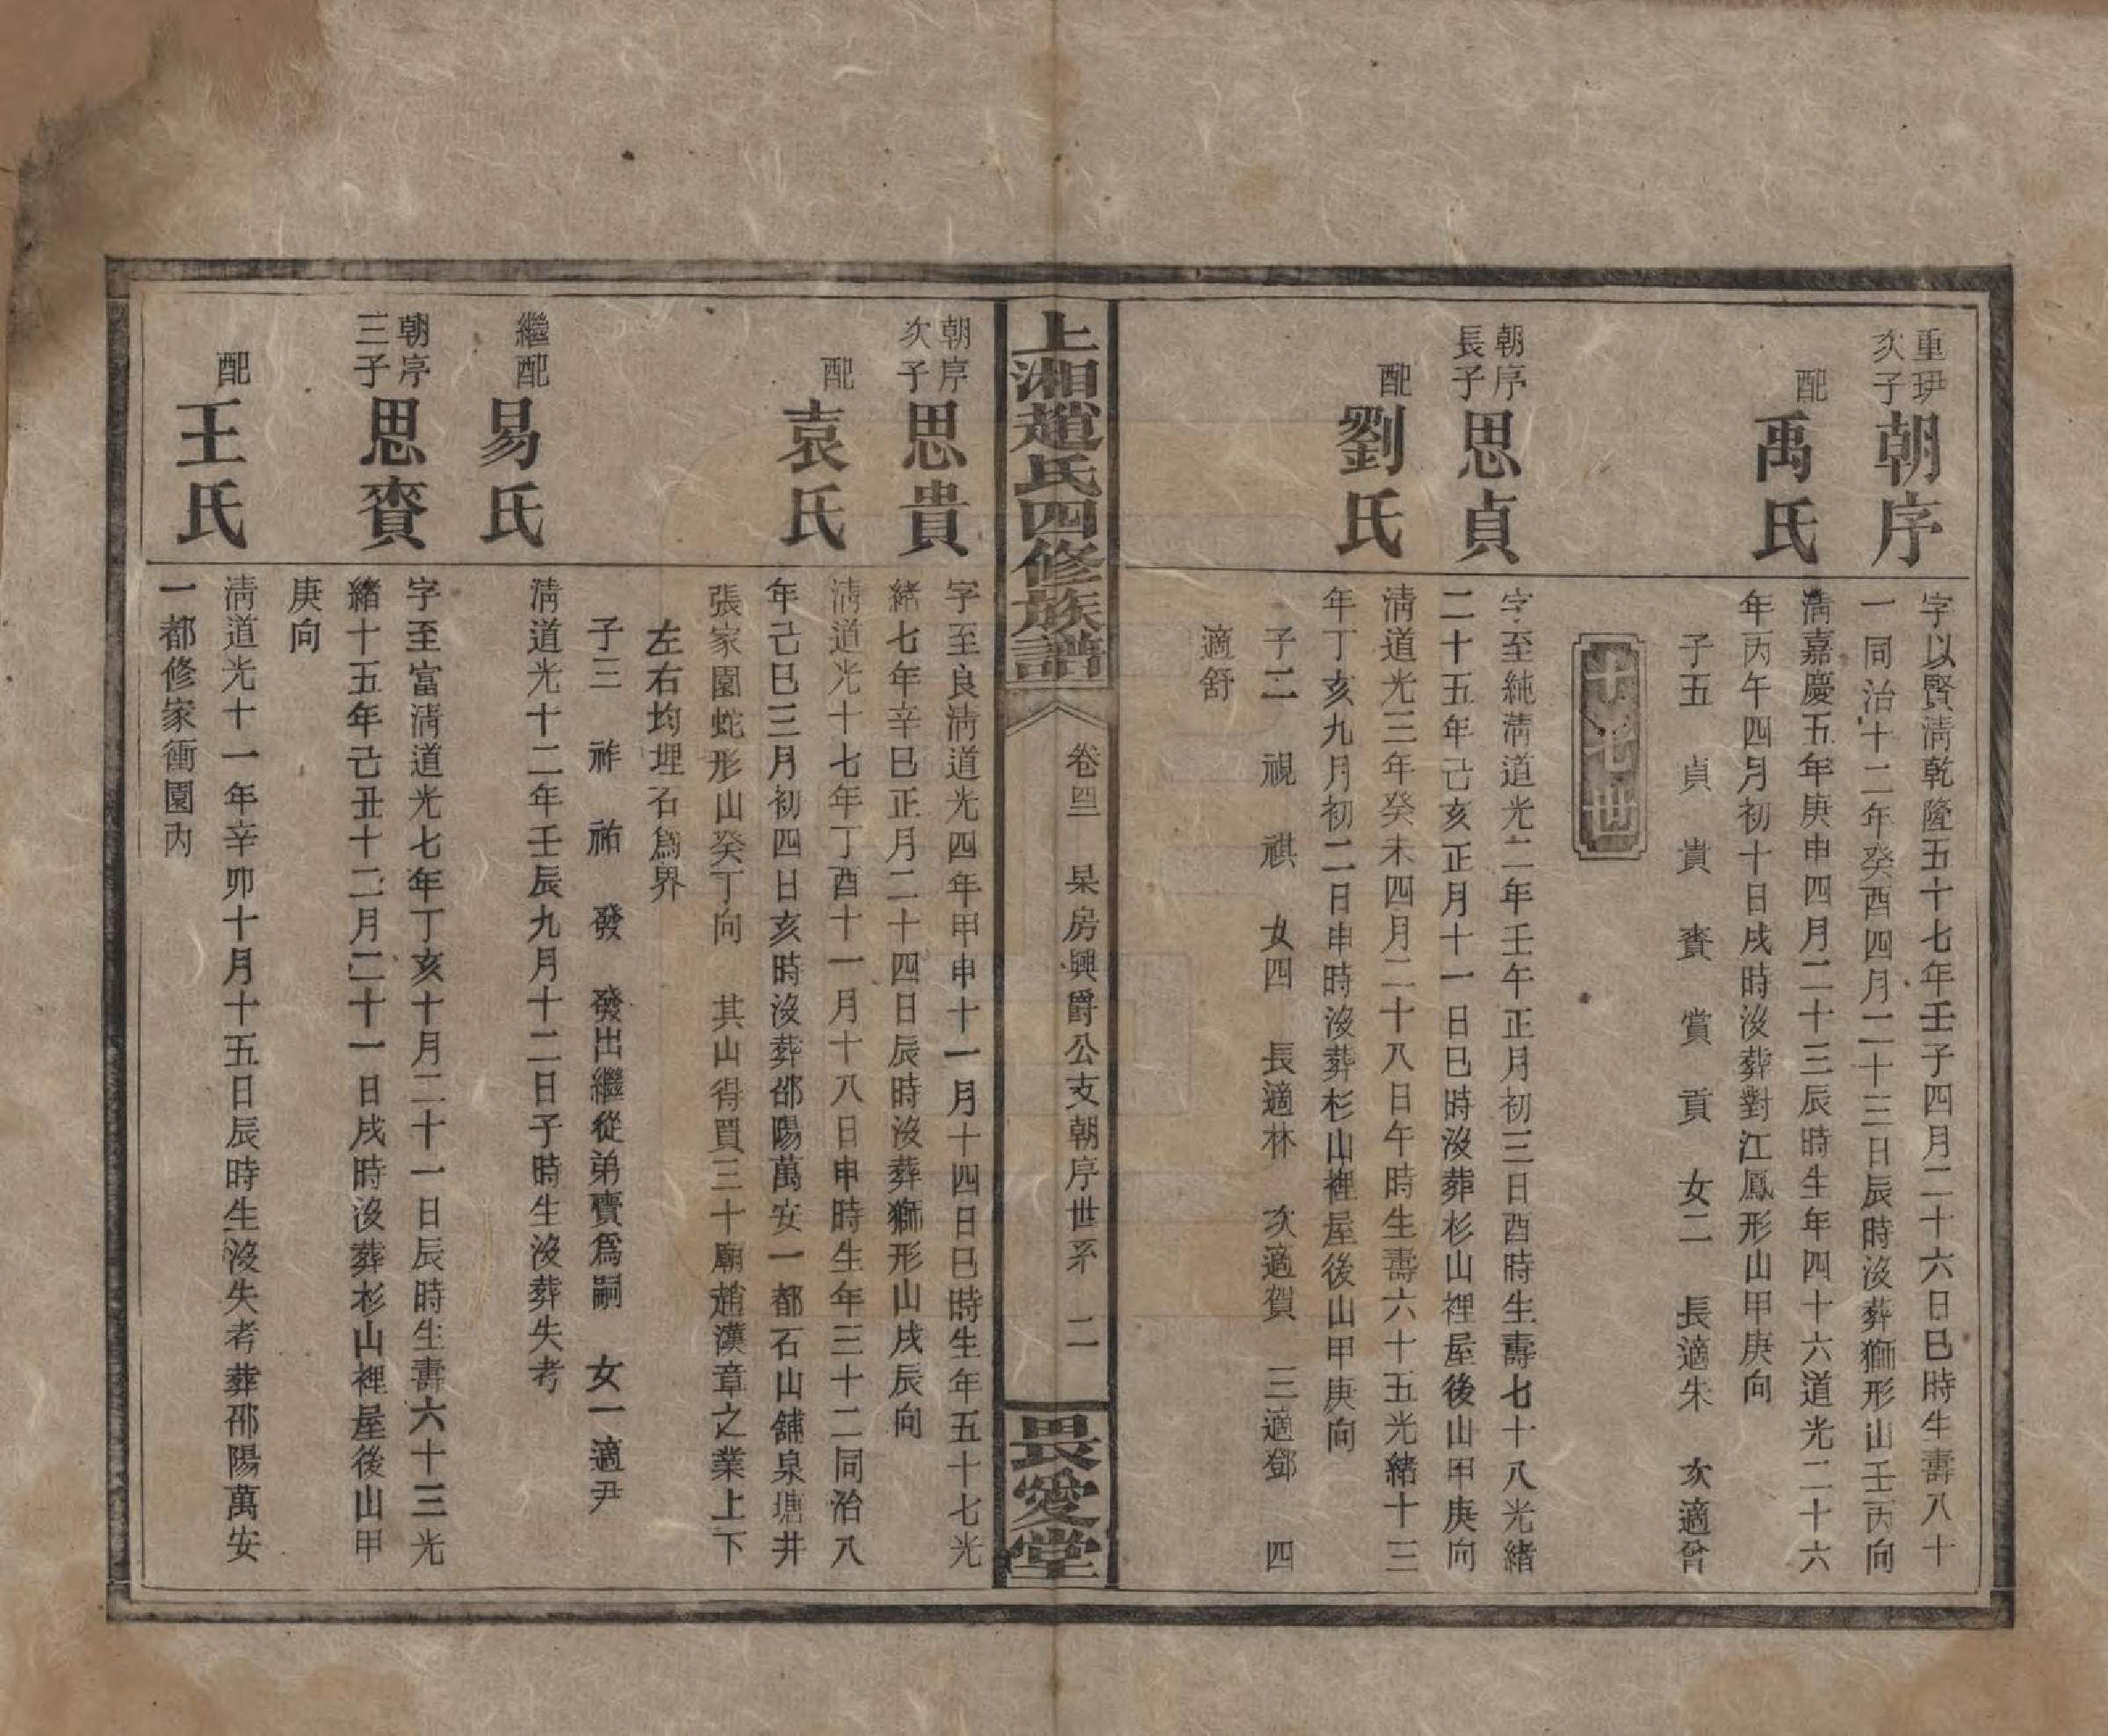 重玾
次子
朝序
字以賢淸乾隆五十七年壬子四月二十六日巳時生壽八十
一同治十二年癸酉四月二十三日辰時沒葬獅形山壬丙向
配
禹氏
淸嘉慶五年庚申四月二十三辰時生年四十六道光二十六
年丙午四月初十日戌時沒葬對江鳳形山甲庚向
子五　貞　貴　賚　賞　貢　女二　長適朱　次適曾
十七世
朝序
長子
思貞
字至純淸道光二年壬午正月初三日酉時生壽七十八光緖
二十五年己亥正月十一日巳時沒葬杉山裡屋後山甲庚向
配
劉氏
淸道光三年癸未四月二十八日午時生壽六十五光緖十三
年丁亥九月初二日申時沒葬杉山裡屋後山甲庚向
子二　視　祺　女四　長適林　次適賀　三適鄧　四
適舒
上湘趙氏四修族譜
卷四　杲房興爵公支朝序世系　二
畏愛堂
朝序
次子
思貴
字至良淸道光四年甲申十一月十四日巳時生年五十七光
緖七年辛巳正月二十四日辰時沒葬獅形山戌辰向
配
袁氏
淸道光十七年丁酉十一月十八日申時生年三十二同治八
年己巳三月初四日亥時沒葬邵陽萬安一都石山舖泉塘井
張家園蛇形山癸丁向　其山得買三十廟趙漢章之業上下
左右均埋石爲界
子三　祚　祐　發　發出繼從弟賣爲嗣　女一適尹
繼配
易氏
淸道光十二年壬辰九月十二日子時生沒葬失考
朝序
三子
思賚
字至富淸道光七年丁亥十月二十一日辰時生壽六十三光
緖十五年己丑十二月二十一日戌時沒葬杉山裡屋後山甲
庚向
配
王氏
淸道光十一年辛卯十月十五日辰時生沒失考葬邵陽萬安
一都修家衝園內